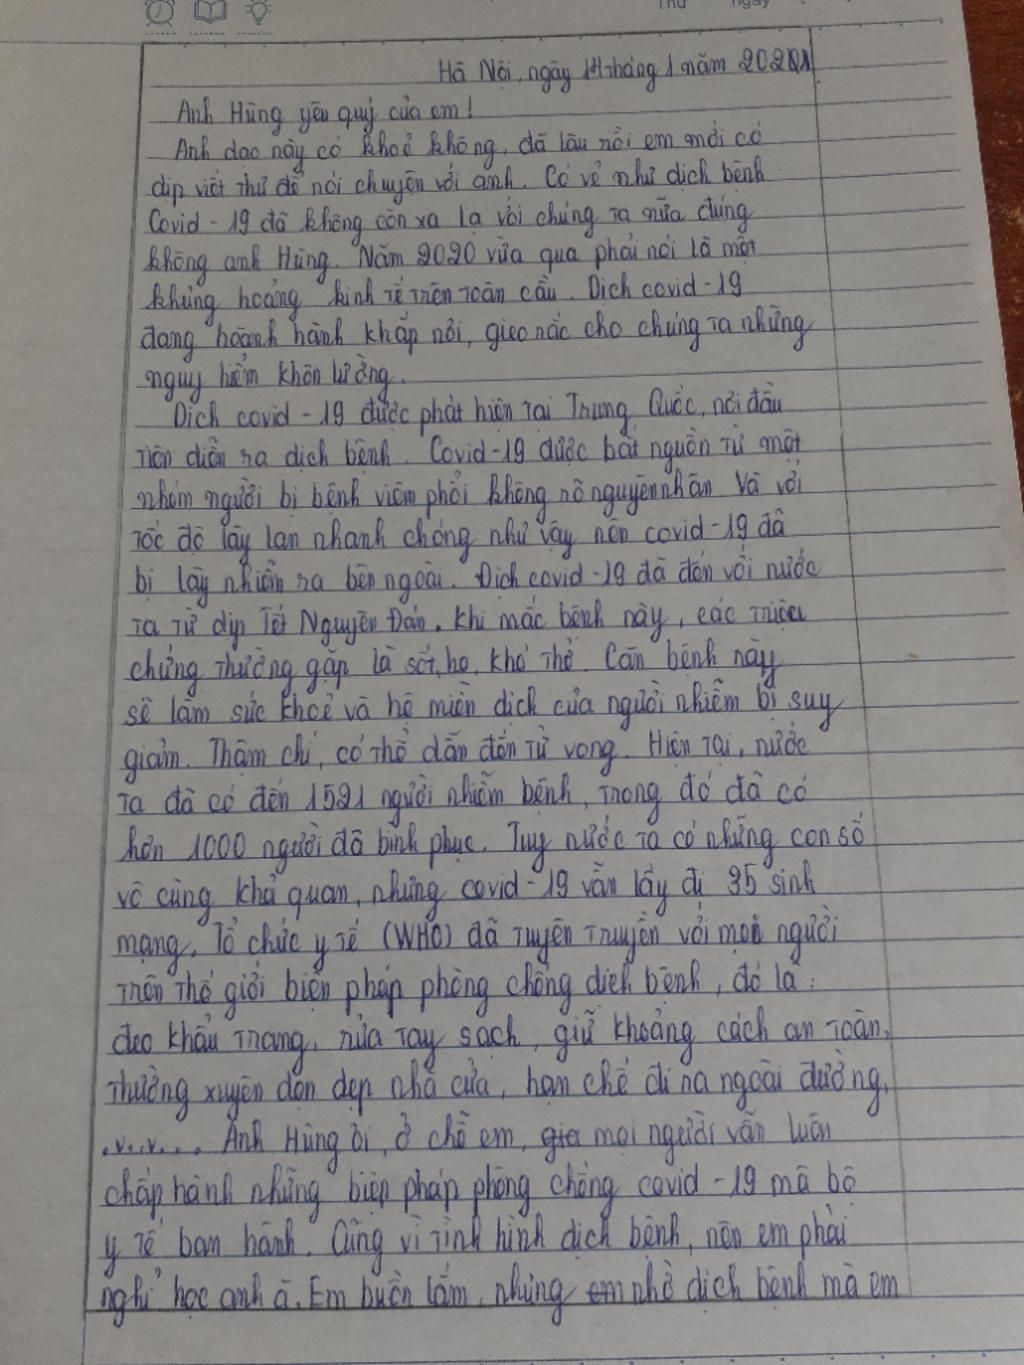 Thứ ngày
Hà Nội, ngày 14 tháng 1 năm 2021
Anh Hùng yêu quý của em!
Anh dạo này có khoẻ không, đã lâu rồi em mới có
dịp viết thư để nói chuyện với anh. Có vẻ như dịch bệnh
Covid - 19 đã không còn xa lạ với chúng ta nữa đúng
không anh Hùng. Năm 2020 vừa qua phải nói là một
khủng hoảng kinh tế trên toàn cầu. Dịch covid - 19
đang hoành hành khắp nơi, gieo rắc cho chúng ta những
nguy hiểm khôn lường.
Dịch covid - 19 được phát hiện tại Trung Quốc, nơi đầu
tiên diễn ra dịch bệnh. Covid-19 được bắt nguồn từ một
nhóm người bị bệnh viêm phổi không rõ nguyên nhân. Và với
tốc độ lây lan nhanh chóng như vậy nên covid - 19 đã
bị lây nhiễm ra bên ngoài. Dịch covid - 19 đã đến với nước
ta từ dịp Tết Nguyên Đán. Khi mắc bệnh này, các triệu
chứng thường gặp là sốt, ho, khó thở. Căn bệnh này
sẽ làm sức khoẻ và hệ miễn dịch của người nhiễm bị suy
giảm. Thậm chí, có thể dẫn đến tử vong. Hiện tại, nước
ta đã có đến 1521 người nhiễm bệnh, trong đó đã có
hơn 1000 người đã bình phục. Tuy nước ta có những con số
vô cùng khả quan, nhưng covid - 19 vẫn lấy đi 35 sinh
mạng. Tổ chức y tế (WHO) đã tuyên truyền với mọi người
trên thế giới biện pháp phòng chống dịch bệnh, đó là:
đeo khẩu trang, rửa tay sạch, giữ khoảng cách an toàn,
thường xuyên dọn dẹp nhà cửa, hạn chế đi ra ngoài đường,
..v..v.... Anh Hùng ơi, ở chỗ em, gia mọi người vẫn luôn
chấp hành những biện pháp phòng chống covid - 19 mà bộ
y tế ban hành. Cũng vì tình hình dịch bệnh, nên em phải
nghỉ học anh ạ. Em buồn lắm, nhưng em nhờ dịch bệnh mà em